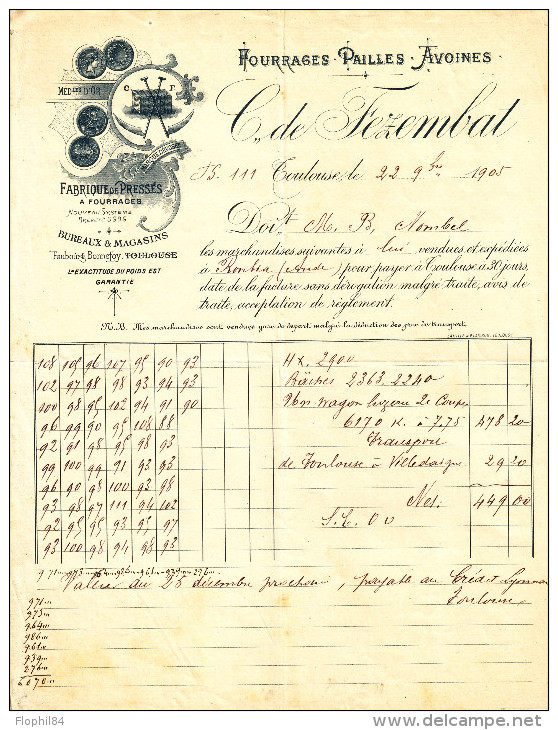 FOURRAGES · PAILLES · AVOINES
MED^LLES D'OR
C. F.
C. de Fezembat
FABRIQUE DE PRESSES
A FOURRAGES
NOUVEAU SYSTÈME
BUREAUX & MAGASINS
Faubourg Bonnefoy, TOULOUSE
L'EXACTITUDE DU POIDS EST
GARANTIE
Fo. 111 Toulouse, le 22 9bre 1905
Doit M. B, Mombel
les marchandises suivantes à lui vendues et expédiées
à (Aude) pour payer à Toulouse à 30 jours,
date de la facture sans dérogation malgré traite, avis de
traite, acceptation de règlement.
N.B. Mes marchandises sont vendues gare de départ malgré la déduction des prix de transport
108 105 96 107 95 90 93
102 97 98 98 93 94 93
100 98 95 102 94 91 90
96 99 90 95 108 88
92 91 98 95 93
99 100 99 91 93 93
96 90 98 100 93 98
93 98 97 111 94 102
92 95 95 93 95 97
93 100 98 94 98 93
Hx. 2900
Bâches 2363, 2240
Un wagon luzerne 2e Coupe
6170 K. à 7,75 478 20
Transport
de Toulouse à Villedaigne 29 20
Net. 449 00
S. C. 00
Valeur au 25 décembre prochain, payable au Crédit Lyonnais
Toulouse
971
973
964
986
961
939
276
6070
Flophil84
www.delcampe.net